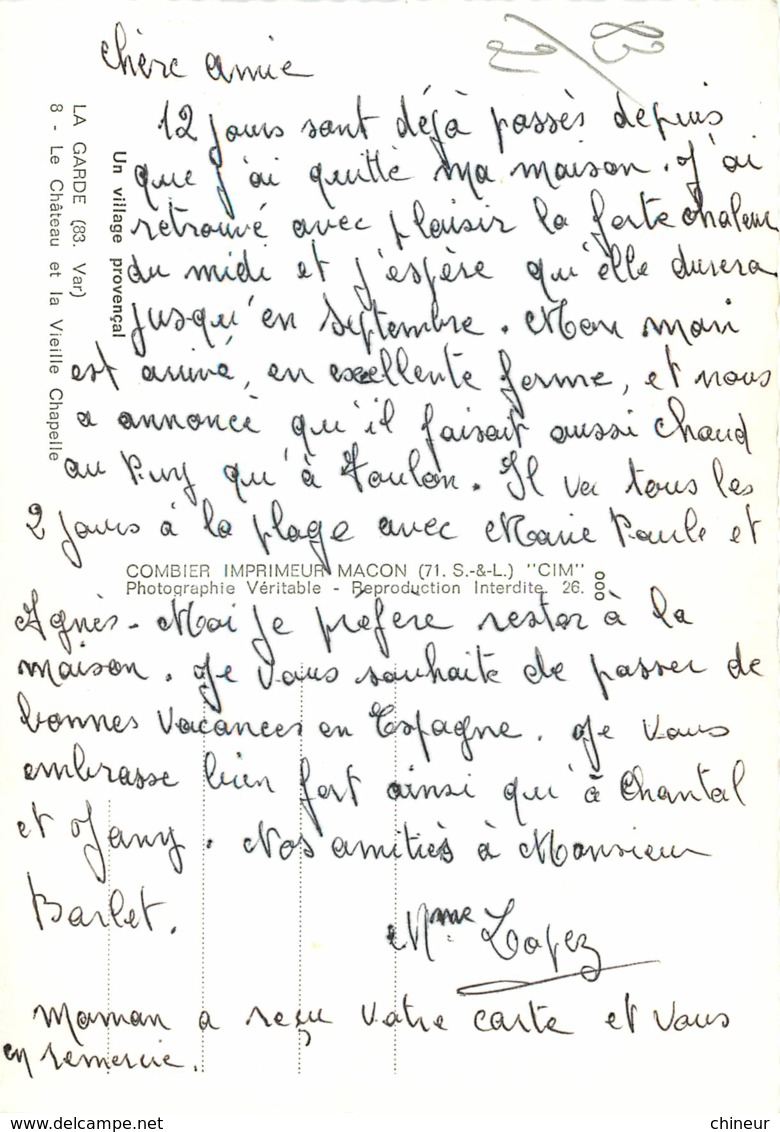 83
2
chère amie
12 jours sont déjà passés depuis
que j'ai quitté ma maison. J'ai
retrouvé avec plaisir la forte chaleur
du midi et j'espère qu'elle durera
jusqu'en septembre. Mon mari
est arrivé, en excellente forme, et nous
a annoncé qu'il faisait aussi chaud
au Puy qu'à Toulon. Il va tous les
2 jours à la plage avec Marie Paule et
Agnès - Moi je préfère rester à la
maison. Je vous souhaite de passer de
bonnes vacances en Espagne. Je vous
embrasse bien fort ainsi qu'à Chantal
et Jany. Nos amitiés à Monsieur
Barlet.
Mme Lopez
Maman a reçu votre carte et vous
en remercie.
Un village provençal
LA GARDE (83. Var)
8 - Le Château et la Vieille Chapelle
COMBIER IMPRIMEUR MACON (71. S.-&-L.) "CIM"
Photographie Véritable - Reproduction Interdite. 26.
chineur